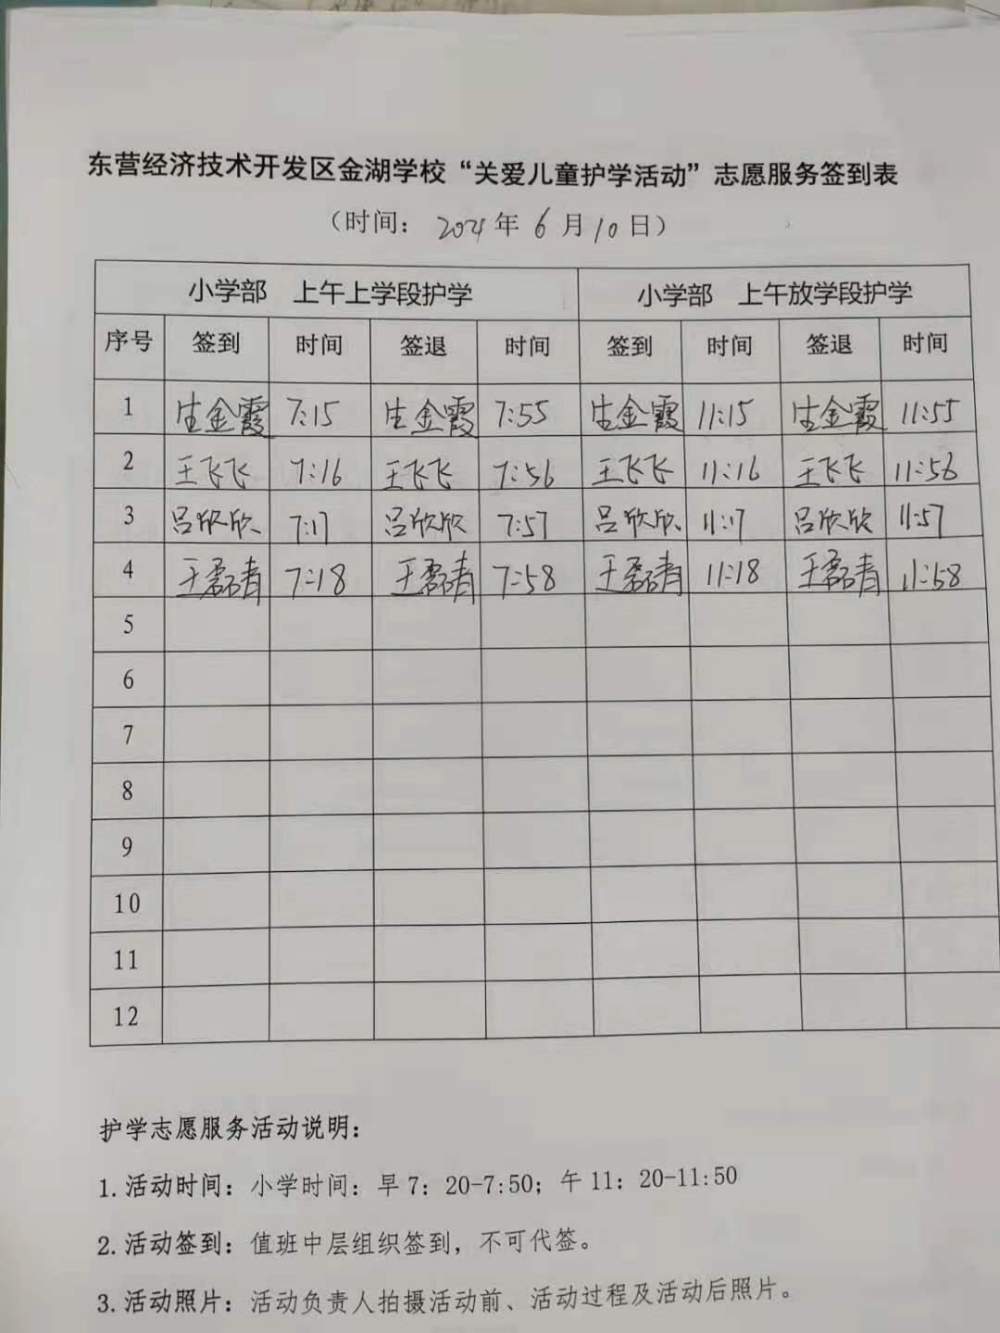 东营经济技术开发区金湖学校“关爱儿童护学活动”志愿服务签到表
（时间： 2021年 6 月 10 日）
小学部 上午上学段护学 小学部 上午放学段护学
序号 签到 时间 签退 时间 签到 时间 签退 时间
1 生金霞 7:15 生金霞 7:55 生金霞 11:15 生金霞 11:55
2 王飞飞 7:16 王飞飞 7:56 王飞飞 11:16 王飞飞 11:56
3 吕欣欣 7:17 吕欣欣 7:57 吕欣欣 11:17 吕欣欣 11:57
4 王磊青 7:18 王磊青 7:58 王磊青 11:18 王磊青 11:58
5
6
7
8
9
10
11
12
护学志愿服务活动说明：
1.活动时间：小学时间：早 7：20-7:50；午 11：20-11:50
2.活动签到：值班中层组织签到，不可代签。
3.活动照片：活动负责人拍摄活动前、活动过程及活动后照片。